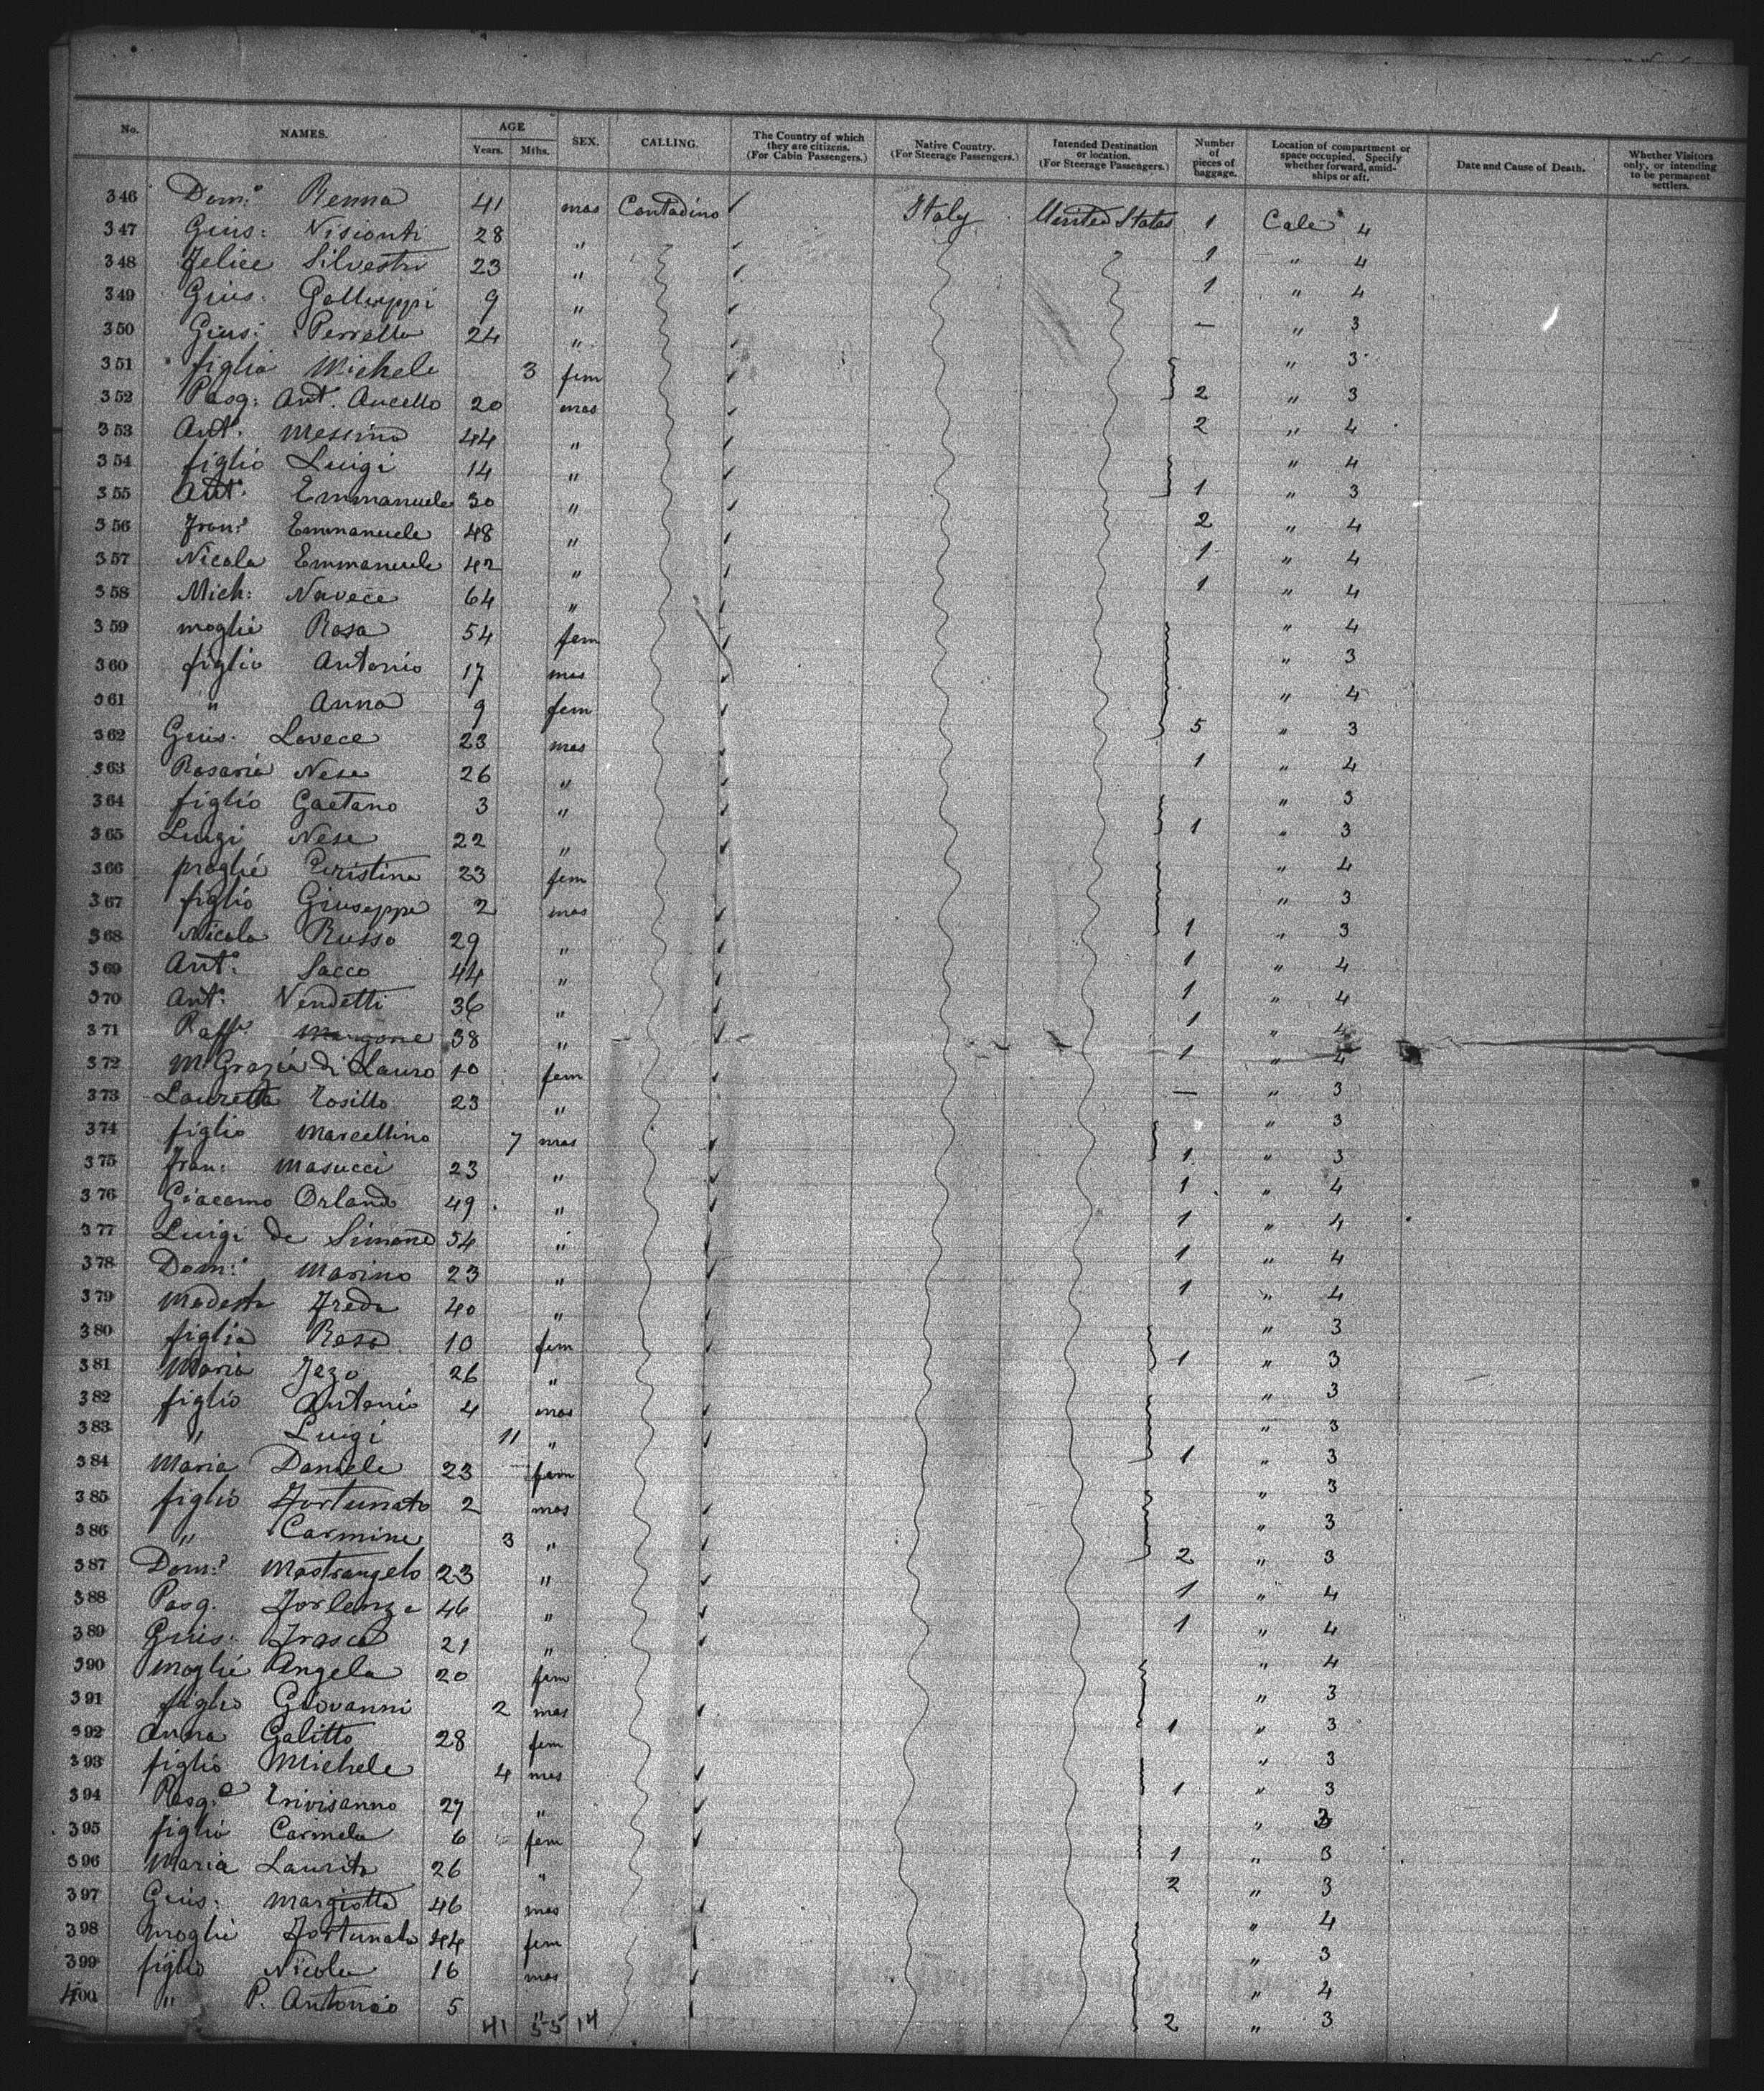 No. NAMES. AGE Years. Mths. SEX. CALLING. The Country of which they are citizens. (For Cabin Passengers.) Native Country. (For Steerage Passengers.) Intended Destination or location. (For Steerage Passengers.) Number of pieces of baggage. Location of compartment or space occupied. Specify whether forward, amidships or aft. Date and Cause of Death. Whether Visitors only, or intending to be permanent settlers.
346 Dom: Renna 41 mas Contadino Italy United States 1 Cale 4
347 Gius: Visionti 28 " 1 " 4
348 Felice Silvestri 23 " 1 " 4
349 Gius: Galluppi 9 " — " 3
350 Gius: Perrella 24 " " 3
351 figlia Michele 3 fem 2 " 3
352 Pasq: Ant. Aucello 20 mas 2 " 4
353 Ant: Messina 44 " " 4
354 figlio Luigi 14 " 1 " 3
355 Ant: Emmanuele 30 " 2 " 4
356 Fran: Emmanuele 48 " 1 " 4
357 Nicola Emmanuele 42 " 1 " 4
358 Mich: Navece 64 " " 4
359 moglie Rosa 54 fem " 3
360 figlio Antonio 17 mas " 4
361 " Anna 9 fem 5 " 3
362 Gius: Lovece 23 mas 1 " 4
363 Rosaria Nese 26 " " 3
364 figlio Gaetano 3 " 1 " 3
365 Luigi Nese 22 " " 4
366 moglie Cristina 23 fem " 3
367 figlio Giuseppe 2 mas 1 " 3
368 Nicola Russo 29 " 1 " 4
369 Ant: Sacco 44 " 1 " 4
370 Ant: Vendetti 36 " 1 " 4
371 Raff: 38 " 1 " 4
372 M. Grazia di Lauro 10 fem — " 3
373 Lauretta Tosillo 23 " " 3
374 figlio Marcellino 7 mas 1 " 3
375 Fran: Masucci 23 " 1 " 4
376 Giacomo Orlando 49 " 1 " 4
377 Luigi de Simone 54 " 1 " 4
378 Dom: Marino 23 " 1 " 4
379 Modesta Freda 40 " " 3
380 figlia Rosa 10 fem 1 " 3
381 Maria Jezo 26 " " 3
382 figlio Antonio 4 mas " 3
383 " Luigi 11 " 1 " 3
384 Maria Daniele 23 fem " 3
385 figlio Fortunato 2 mas " 3
386 " Carmine 3 " 2 " 3
387 Dom: Mastrangelo 23 " 1 " 4
388 Pasq. Forlenza 46 " 1 " 4
389 Gius: Frasca 21 " " 4
390 moglie Angela 20 fem " 3
391 figlio Giovanni 2 mas 1 " 3
392 Anna Galitto 28 fem " 3
393 figlio Michele 4 mas 1 " 3
394 Pasq: Trivisanno 27 " " 3
395 figlia Carmela 6 fem 1 " 3
396 Maria Laurita 26 " 2 " 3
397 Gius: Margiotta 46 mas " 4
398 moglie Fortunata 44 fem " 3
399 figlio Nicola 16 mas " 4
400 " P. Antonio 5 " 2 " 3
41 55 14